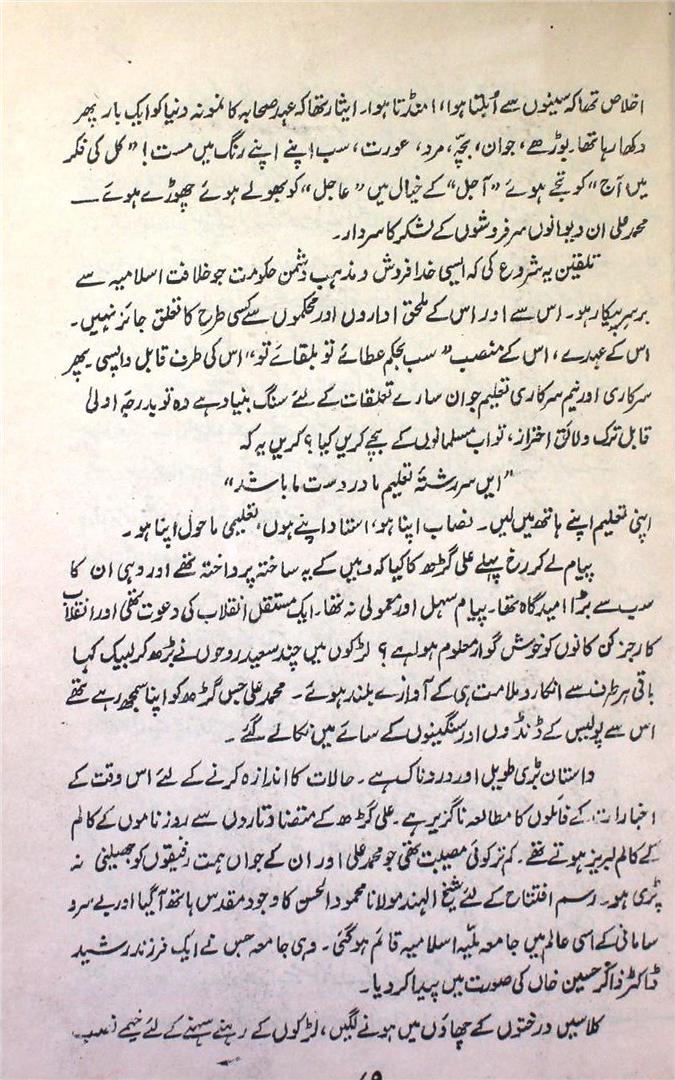 اخلاص تھا کہ سینوں سے اُبلتا ہوا، امنڈتا ہوا۔ ایثار تھا کہ عہد صحابہ کا نمونہ دنیا کو ایک بار پھر
دکھا رہا تھا۔ بوڑھے، جوان، بچّے، مرد، عورت، سب اپنے اپنے رنگ میں مست! "کل کی فکر
میں آج" کو تجے ہوئے "آجل" کے خیال میں "عاجل" کو بھولے ہوئے چھوڑے ہوئے ــــ
محمد علی ان دیوانوں سرفروشوں کے لشکر کا سردار۔
تلقین یہ شروع کی کہ ایسی خدا فروش و مذہب دشمن حکومت جو خلافت اسلامیہ سے
برسرپیکار ہو۔ اس سے اور اس کے ملحق اداروں اور محکموں سے کسی طرح کا تعلق جائز نہیں۔
اس کے عہدے، اس کے منصب "سب بحکم عطائے تو بلقائے تو" اس کی طرف قابل واپسی پھر
سرکاری اور نیم سرکاری تعلیم جو ان سارے تعلقات کے لئے سنگ بنیاد ہے وہ تو بدرجہ اولیٰ
قابل ترک و لائق احتراز، تو اب مسلمانوں کے بچے کریں کیا؟ کریں یہ کہ
"ایں سررشتۂ تعلیم ما در دست ما باشد"
اپنی تعلیم اپنے ہاتھ میں لیں۔ نصاب اپنا ہو، استاد اپنے ہوں، تعلیمی ماحول اپنا ہو۔
پیام لے کر رخ پہلے علی گڑھ کا کیا کہ وہیں کے یہ ساختہ پرداختہ تھے اور وہی ان کا
سب سے بڑا امیدگاہ تھا۔ پیام سہل اور معمولی نہ تھا۔ ایک مستقل انقلاب کی دعوت تھی اور انقلاب
کا رجز کن کانوں کو خوش گوار معلوم ہوا ہے؟ لڑکوں میں چند سعید روحوں نے بڑھ کر لبیک کہا
باقی ہر طرف سے انکار و ملامت ہی کے آوازے بلند ہوئے۔ محمد علی جس گڑھ کو اپنا سمجھ رہے تھے
اس سے پولیس کے ڈنڈوں اور سنگینوں کے سائے میں نکالے گئے۔
داستان بڑی طویل اور دردناک ہے۔ حالات کا اندازہ کرنے کے لئے اس وقت کے
اخبارات کے فائلوں کا مطالعہ ناگزیر ہے۔ علی گڑھ کے متضاد تاروں سے روزناموں کے کالم
کے کالم لبریز ہوتے تھے۔ کم تر کوئی مصیبت تھی جو محمد علی اور ان کے جواں ہمت رفیقوں کو جھیلنی نہ
پڑی ہو۔ رسم افتتاح کے لئے شیخ الہند مولانا محمود الحسن کا وجود مقدس ہاتھ آگیا اور بے سرو
سامانی کے اسی عالم میں جامعہ ملّیہ اسلامیہ قائم ہوگئی۔ وہی جامعہ جس نے ایک فرزند رشید
ڈاکٹر ذاکر حسین خاں کی صورت میں پیدا کر دیا۔
کلاسیں درختوں کے چھاؤں میں ہونے لگیں، لڑکوں کے رہنے سہنے کے لئے خیمے نصب